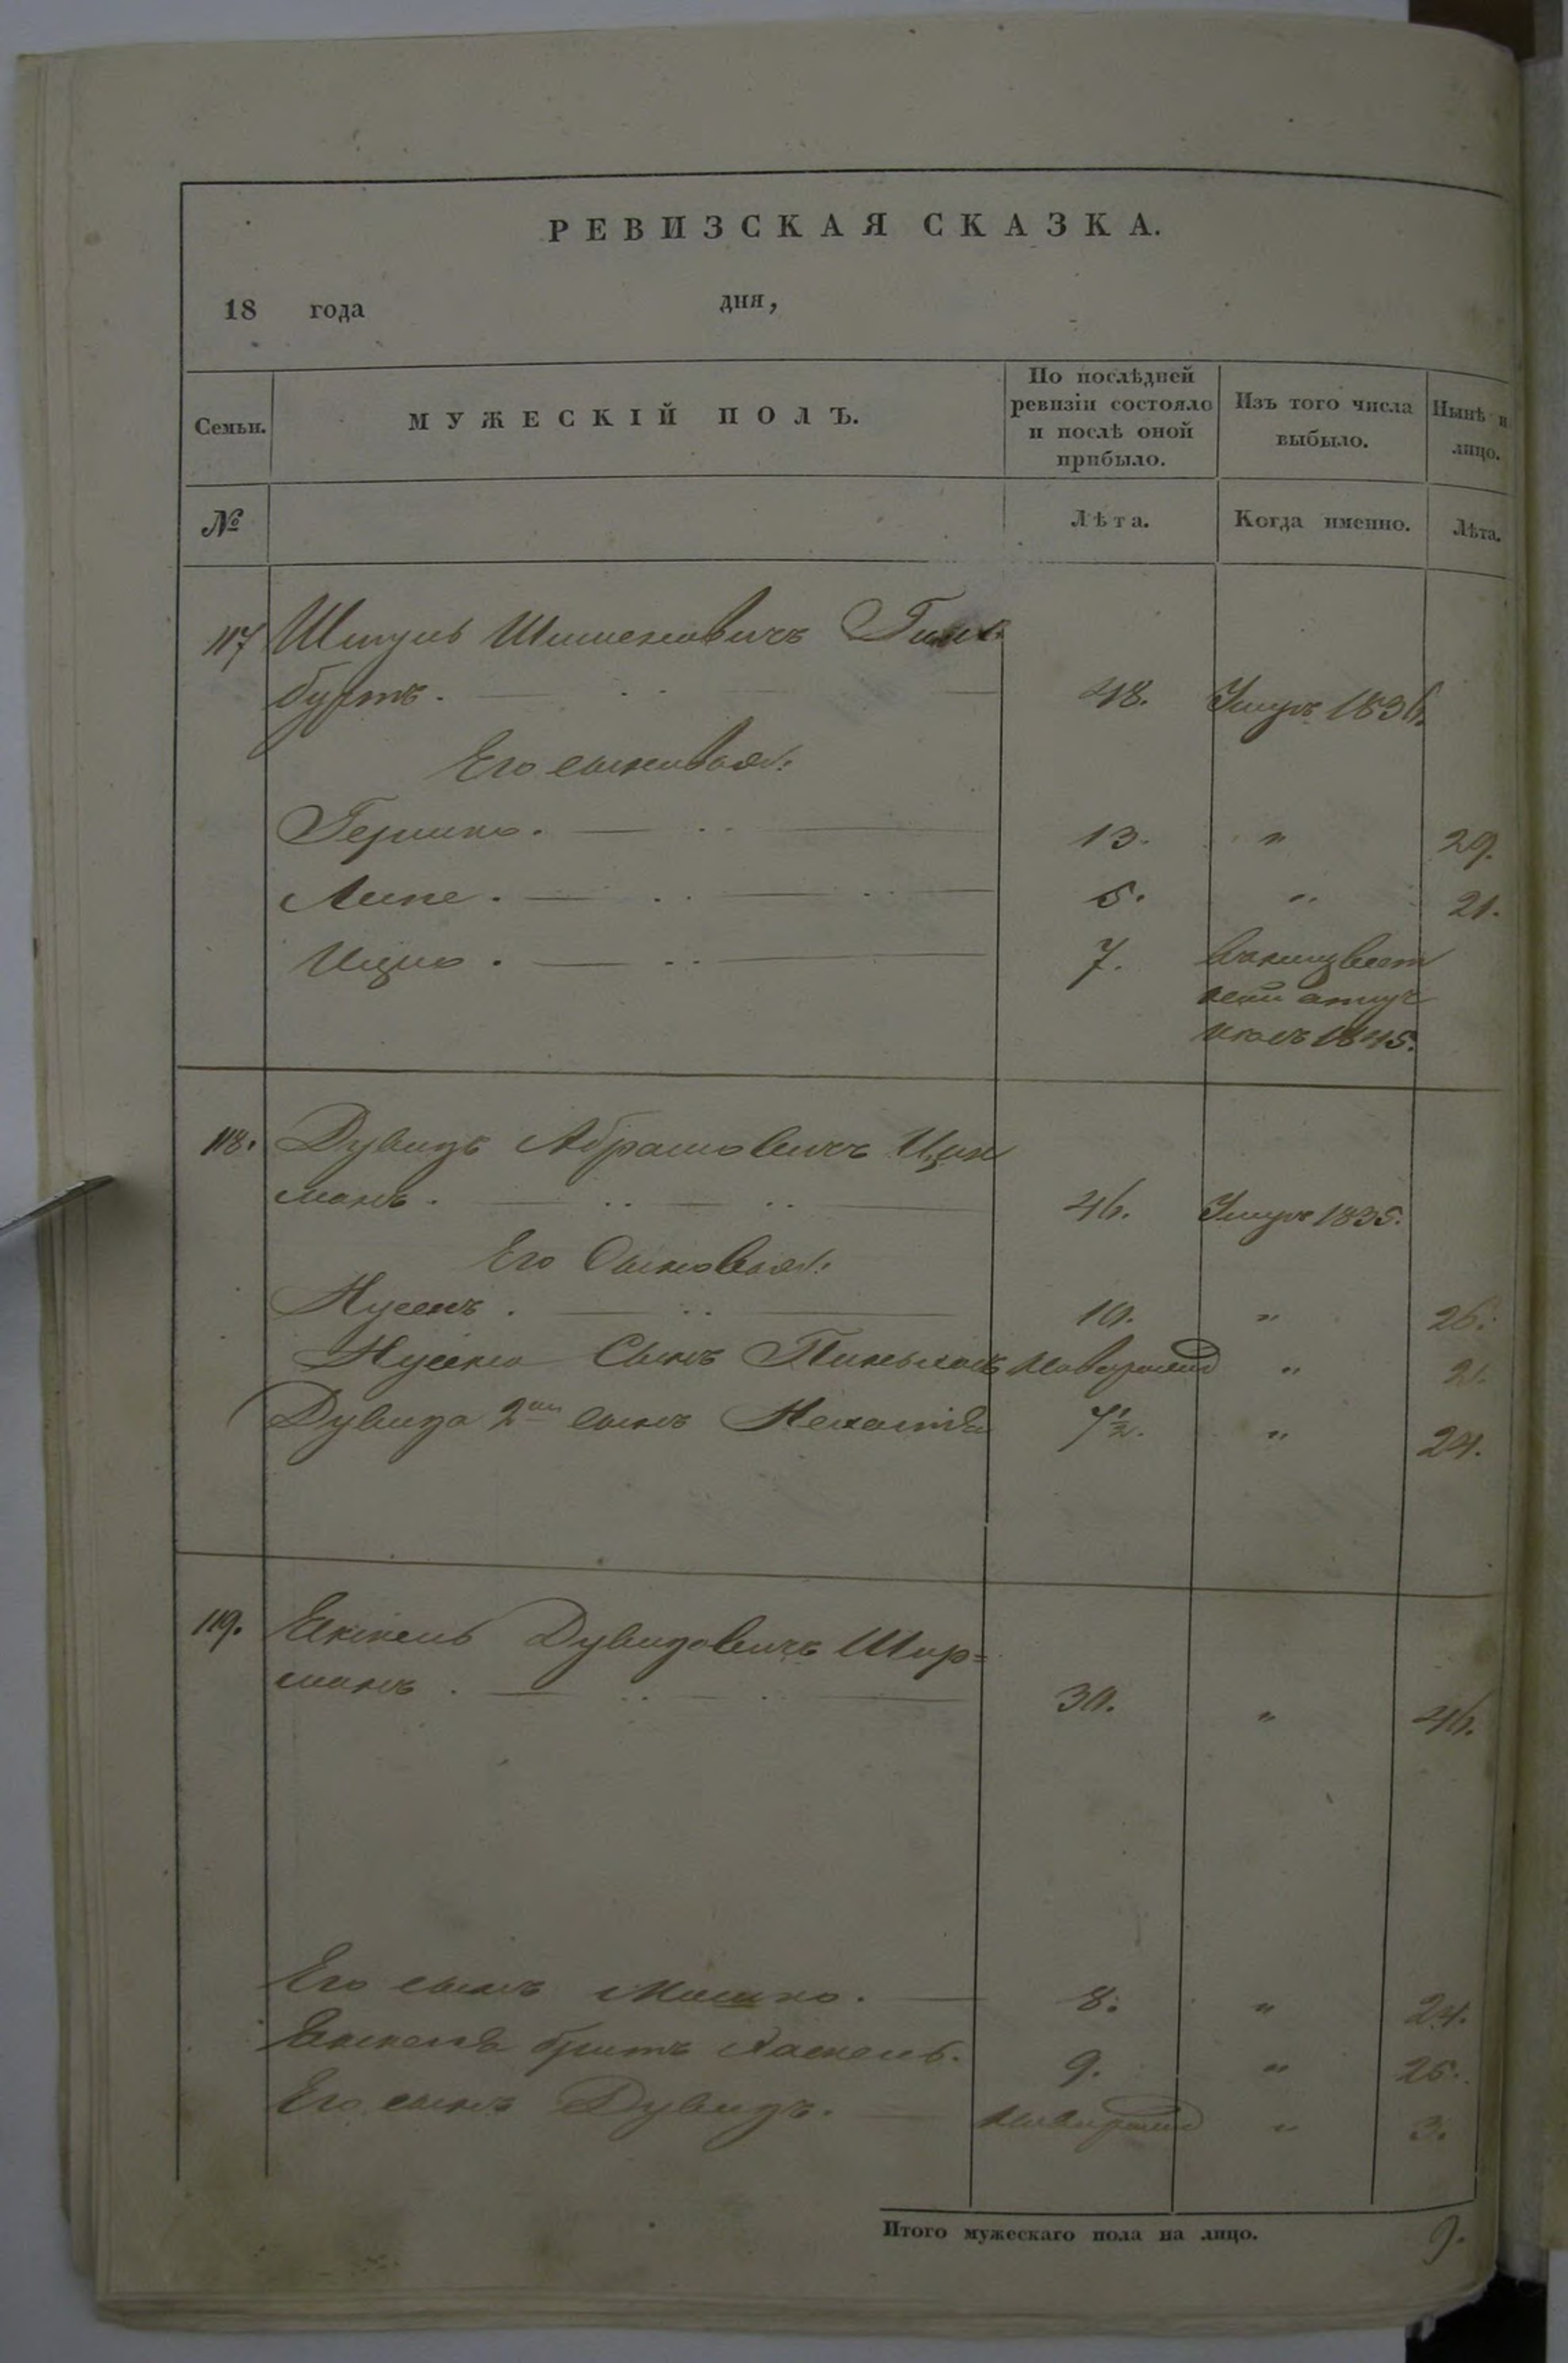 РЕВИЗСКАЯ СКАЗКА.
18 года дня,
Семьи. МУЖЕСКІЙ ПОЛЪ. По послѣдней ревизіи состояло и послѣ оной прибыло. Изъ того числа выбыло. Нынѣ н лицо.
№ Лѣта. Когда именно. Лѣта.
117 Шмуль
бургъ. 48. Умеръ 1836.
Его сыновья:
Гершко. 13. " 29.
Липе. 5. " 21.
Ицко. 7.
1845.
118. Дувидъ Абрамовичъ Цук
манъ. 46. Умеръ 1835.
Его Сыновья:
Нусенъ. 10. " 26.
Сынъ новорожд " 2.
Дувида 2ой сынъ 7½. " 24.
119. Дувидовичъ Шар=
манъ. 30. " 46.
Его сынъ Мошко. 8. " 24.
братъ 9. " 25.
Его сынъ Дувидъ. новорожд " 3.
Итого мужескаго пола на лицо. 9.